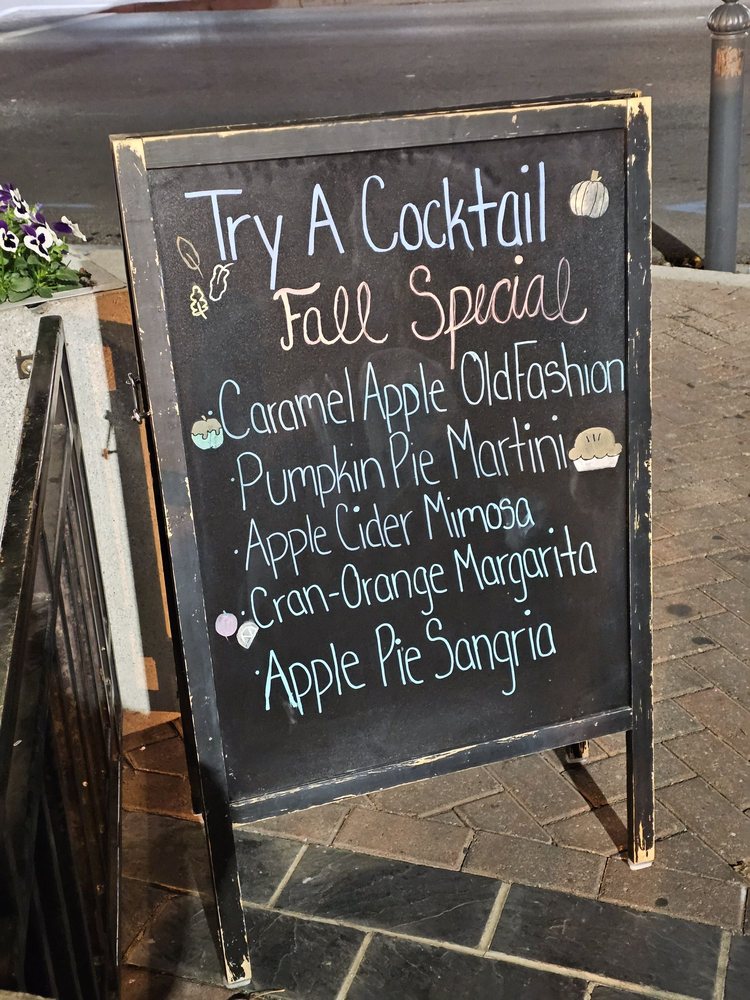 Try A Cocktail
Fall Special
·Caramel Apple OldFashion
·Pumpkin Pie Martini
·Apple Cider Mimosa
·Cran-Orange Margarita
·Apple Pie Sangria